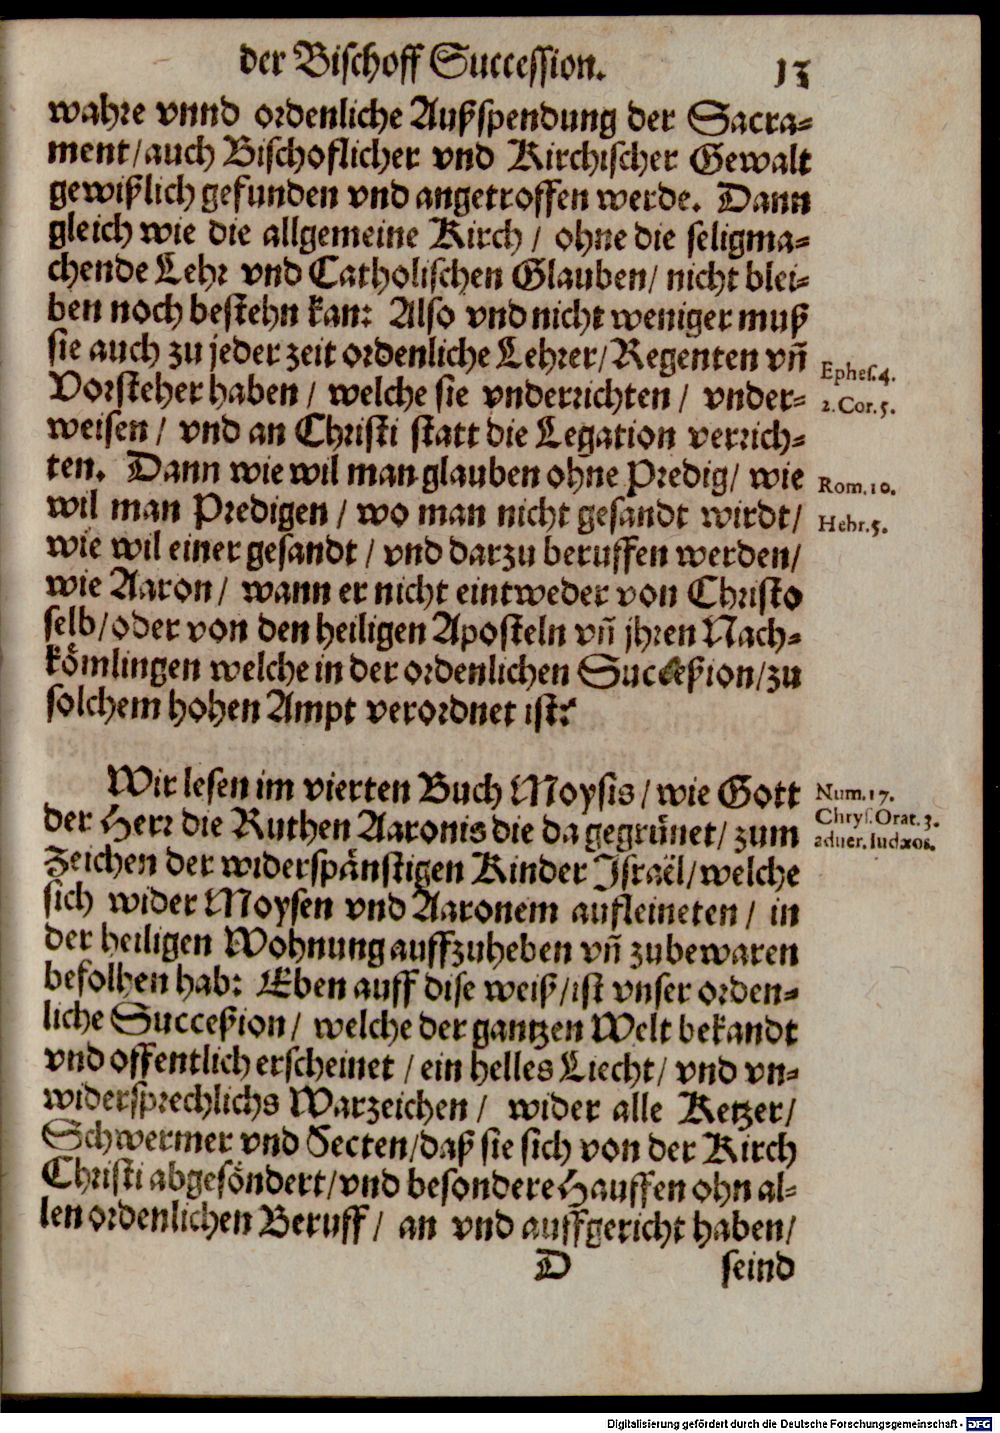 der Bischoff Succession. 13
wahre vnnd ordenliche Außspendung der Sacra-
ment/auch Bischoflicher vnd Kirchischer Gewalt
gewißlich gefunden vnd angetroffen werde. Dann
gleich wie die allgemeine Kirch / ohne die seligma-
chende Lehr vnd Catholischen Glauben/ nicht blei-
ben noch bestehn kan: Also vnd nicht weniger muß
sie auch zu jeder zeit ordenliche Lehrer/Regenten vñ
Ephes.4.
Vorsteher haben / welche sie vnderrichten / vnder-
2.Cor.5.
weisen / vnd an Christi statt die Legation verrich-
ten. Dann wie wil man glauben ohne Predig/ wie
Rom.10.
wil man Predigen / wo man nicht gesandt wirdt/
Hebr.5.
wie wil einer gesandt / vnd darzu beruffen werden/
wie Aaron / wann er nicht eintweder von Christo
selb/oder von den heiligen Aposteln vñ jhren Nach-
kömlingen welche in der ordenlichen Succeßion/zu
solchem hohen Ampt verordnet ist?
Wir lesen im vierten Buch Moysis / wie Gott
Num.17.
der Herr die Ruthen Aaronis die da gegrünet/ zum
Chrys.Orat.3.
aduer.Iudæos.
Zeichen der widerspänstigen Kinder Israël/welche
sich wider Moysen vnd Aaronem aufleineten / in
der heiligen Wohnung auffzuheben vñ zubewaren
befolhen hab: Eben auff dise weiß/ist vnser orden-
liche Succeßion / welche der gantzen Welt bekandt
vnd offentlich erscheinet / ein helles Liecht/ vnd vn-
widersprechlichs Warzeichen / wider alle Ketzer/
Schwermer vnd Secten/daß sie sich von der Kirch
Christi abgesöndert/vnd besondere Hauffen ohn al-
len ordenlichen Beruff / an vnd auffgericht haben/
D seind
Digitalisierung gefördert durch die Deutsche Forschungsgemeinschaft - DFG